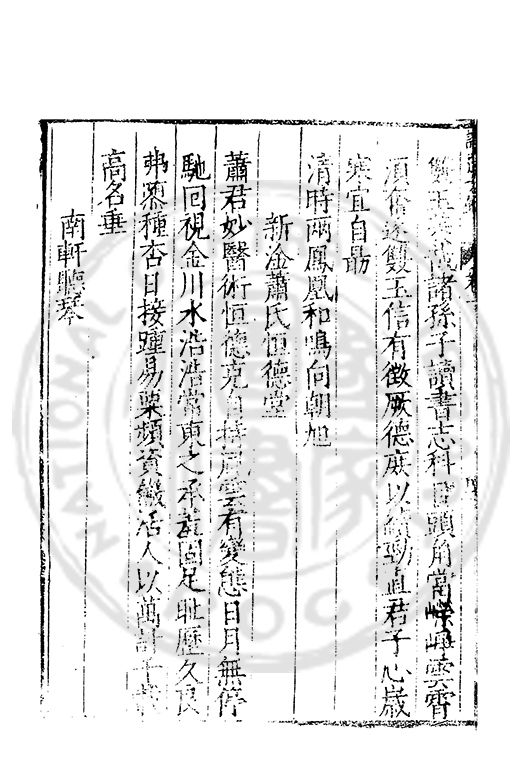 雙玉 諸孫子讀書志科目頭角當崢嶸雲霄
須奮逐雙玉信有徵厥德庶以續勁直君子心歲
寒宜自勗
清時兩鳳凰和鳴向朝旭
新淦蕭氏恒德堂
蕭君妙醫術恒德克自持 雲有變態日月無停
馳回視金川水浩浩常東之承 固足耻歷久良
弗 種杏日接踵易粟頻資 活人以萬計千載
高名垂
南軒聽琴